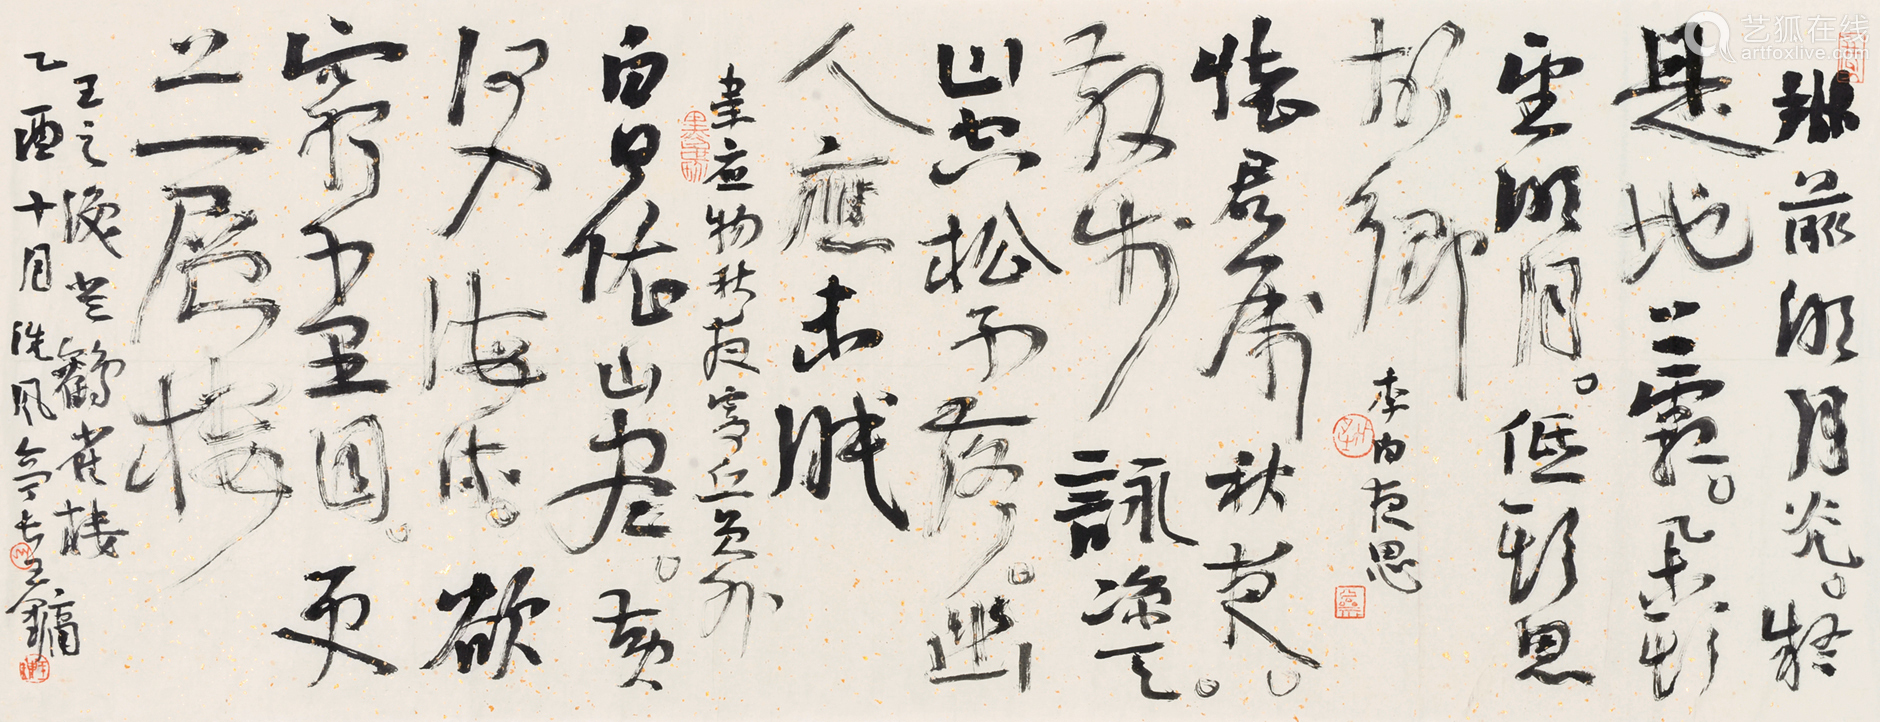 牀前明月光。疑
是地上霜。舉頭
望明月。低頭思
故鄉
李白夜思
懷君屬秋夜。
散步詠涼天。
山空松子落。幽
人應未眠
韋应物秋夜寄丘員外
白日依山盡。黃
河入海流。欲
窮千里目。更
上一層樓
王之渙登鸛雀樓
乙酉十月洗風亭長王鏞
艺狐在线
artfoxlive.com